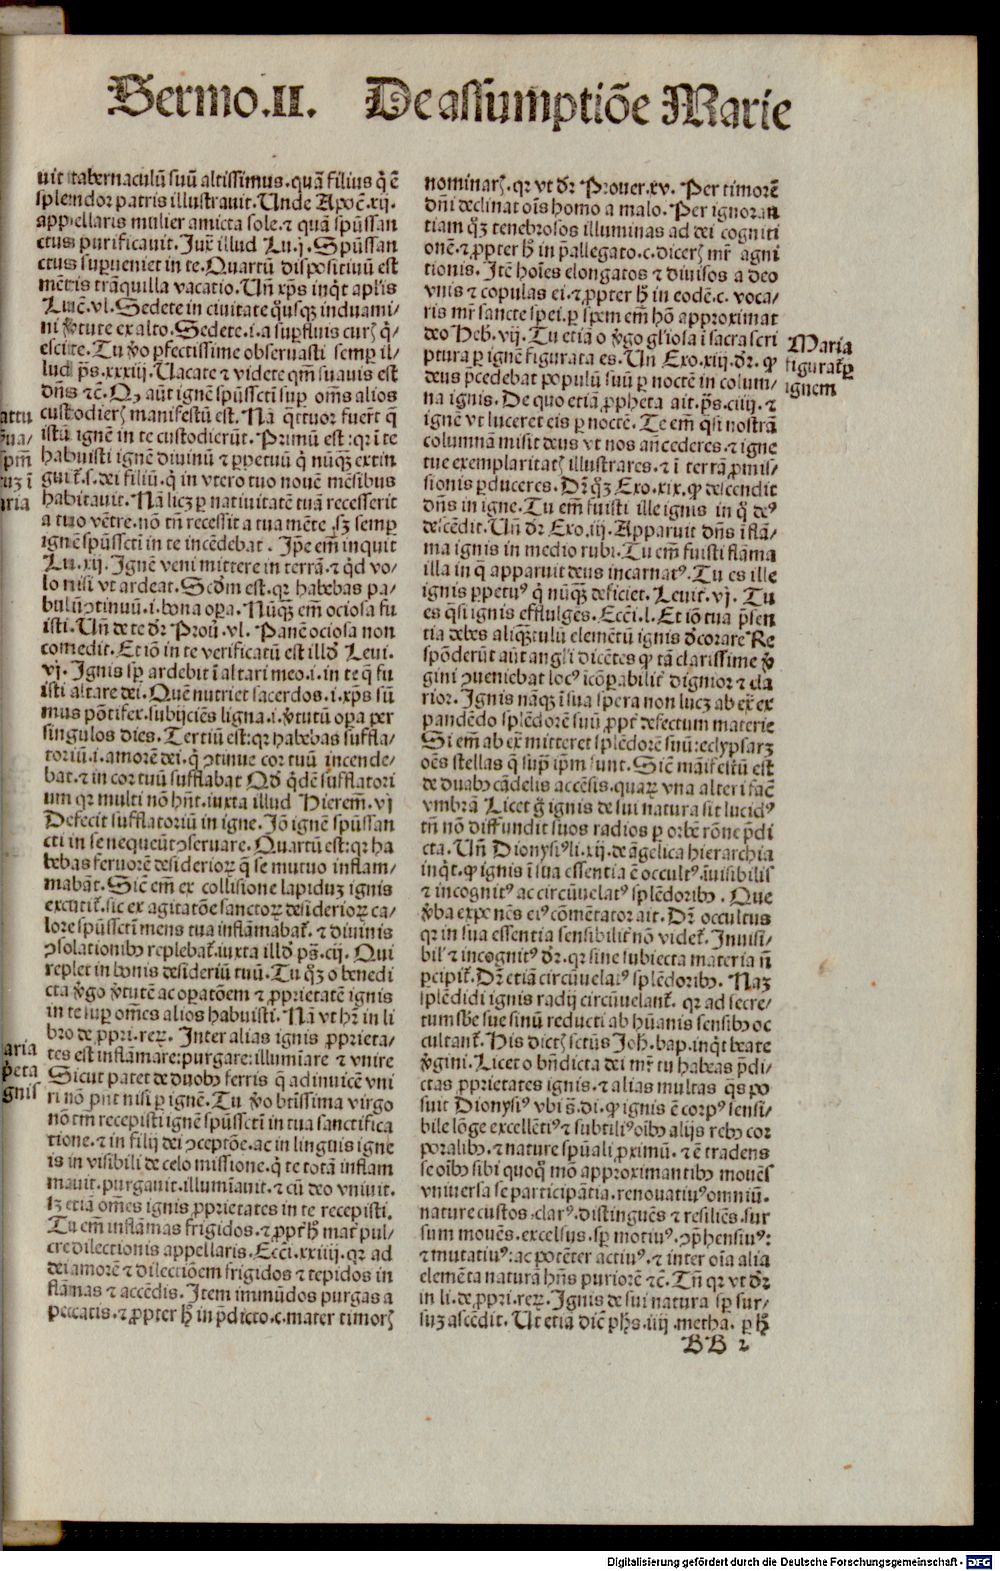 Sermo.II. De assumptiōe Marie
uit tabernaculū suū altissimus.quā filius q̇ ē
splendor patris illustrauit.Unde Apoč.xij.
appellaris mulier amicta sole.⁊ quā spūssan
ctus purificauit.Juxͭ illud Lu.j.Spūssan
ctus supueniet in te.Quartū dispositiuū est
mētis trāquilla vacatio.Un̄ xp̄s inq̇t apl̓is
Luč.vl.Sedete in ciuitate q̇usqꝫ induami-
ni v̓tute ex alto.Sedete.i.a supfluis curꝭ q̇-
escite.Tu v̓o ꝑfectissime obseruasti semꝑ il-
lud ps̄.xxxiij.Uacate ⁊ videte qm̄ suauis est
dn̄s ⁊č. aūt ignē spūssct̄i suꝑ om̄s alios
custodierꝭ manifestū est.Nā q̄ttuor fuerūt q̄
istū ignē in te custodierūt.Primū est:qꝛ ī te
habuisti ignē diuinū ⁊ ꝑpetuū q̇ nūqꝫ extin
guit̃.s.dei filiū.q̇ in vtero tuo nouē mēsibus
habitauit.Nā licꝫ ꝑ natiuitatē tuā recesserit
a tuo vētre.nō tn̄ recessit a tua mēte.sꝫ semꝑ
ignē spūssct̄i in te incēdebat.Ip̄e em̄ inquit
Lu.xij.Ignē veni mittere in terrā.⁊ q̇d vo-
lo nisi vt ardeat.Scd̓m est.qꝛ habebas pa-
bulū ꝯtinuū.i.bona oꝑa.Nūqꝫ em̄ ociosa fu
isti.Un̄ de te dꝛ̄ Prou̓.vl.Panē ociosa non
comedit.Et iō in te verificatū est illd̓ Leui.
vj.Ignis sꝑ ardebit ī altari meo.i.in te q̄ fu
isti altare dei.Quē nutriet sacerdos.i.xp̄s sū
mus pōtifex.subijciēs ligna.i.v̓tutū oꝑa per
singulos dies.Tertiū est:qꝛ habebas suffla-
toriū.i.amorē dei.q̇ ꝯtinue cor tuū incende-
bat.⁊ in cor tuū sufflabat Qd̓ q̇dē sufflatori
um qꝛ multi nō hn̄t.iuxta illud Hierem̄.vj
Defecit sufflatoriū in igne.Jō ignē spūssan
cti in se nequeūt ꝯseruare.Quartū est:qꝛ ha
bebas feruorē desiderioꝝ q̄ se mutuo inflam-
mabāt.Sič em̄ ex collisione lapiduꝫ ignis
excutit̃.sic ex agitatōe sanctoꝝ desiderioꝝ ca-
lore spūssct̄i mens tua inflāmabat̃.⁊ diuinis
ꝯsolationibꝰ replebat̃.iuxta illd̓ ps̄.cij.Qui
replet in bonis desideriū tuū.Tu qꝫ o benedi
cta v̓go v̓tutē ac oꝑatōem ⁊ ꝓprietatē ignis
in te suꝑ om̄es alios habuisti.Nā vt hr̄ in li
bro de ꝓpri.reꝝ.Inter alias ignis ꝓprieta-
tes est inflāmare:purgare:illumīare ⁊ vnire
Sicut patet de duobꝰ ferris q̄ adinuicē vni
ri nō pn̄t nisi ꝑ ignē.Tu v̓o btīssima virgo
nō tm̄ recepisti ignē spūssct̄i in tua sanctifica
tione.⁊ in filij dei ꝯceptōe.ac in linguis igne
is in visibili de celo missione.q̇ te totā inflam
mauit.purgauit.illumīauit.⁊ cū deo vniuit.
sꝫ etiā om̄es ignis ꝓprietates in te recepisti.
Tu em̄ inflāmas frigidos.⁊ ꝓpt̓ hꝰ mat̓ pul-
cre dilectionis appellaris.Ecči.xxiiij.qꝛ ad
dei amorē ⁊ dilectiōem frigidos ⁊ tepidos in
flāmas ⁊ accēdis.Item immūdos purgas a
peccatis.⁊ ꝓpter hꝰ in p̄dicto.c.mater timorꝭ
nominarꝭ.qꝛ vt dꝛ̄ Prouer.xv.Per timorē
dn̄i declinat oīs homo a malo.Per ignoran
tiam qꝫ tenebrosos illuminas ad dei cogniti
onē.⁊ ꝓpter hꝰ in p̄allegato.c.dicerꝭ mr̄ agni
tionis.Itē hoīes elongatos ⁊ diuisos a deo
vnis ⁊ copulas ei.⁊ ꝓpter hꝰ in eodē.c.voca-
ris mr̄ sancte spei.ꝑ spem em̄ hō approximat
deo Heb.vij.Tu etiā o v̓go gl̓iosa ī sacra scri
ptura ꝑ ignē figurata es.Un̄ Exo.xiij.dꝛ̄.ꝙ
deus p̄cedebat populū suū ꝑ noctē in colum-
na ignis.De quo etiā ꝓpheta ait.ps̄.ciiij.⁊
ignē vt luceret eis ꝑ noctē.Te em̄ q̄si nostrā
columnā misit deus vt nos an̄cederes.⁊ igne
tue exemplaritatꝭ illustrares.⁊ ī terrā ꝓmis-
sionis ꝑduceres.Dꝛ̄ qꝫ Exo.xix.ꝙ descendit
dn̄s in igne.Tu em̄ fuisti ille ignis in q̇ deꝰ
descēdit.Un̄ dꝛ̄ Exo.iij.Apparuit dn̄s ī flā-
ma ignis in medio rubi.Tu em̄ fuisti flāma
illa in q̄ apparuit deus incarnatꝰ.Tu es ille
ignis ꝑpetuꝰ q̇ nūqꝫ deficiet.Leuit̓.vj.Tu
es q̄si ignis effulgēs.Ecči.l.Et iō tua p̄sen
tia debes aliqꝫtulū elemētū ignis d̓corare Re
spōderūt aūt angl̓i dicētes ꝙ tā clarissime v̓
gini ꝯueniebat locꝰ icōꝑabilit̓ dignior ⁊ cla
rior.Ignis nāqꝫ ī sua spera non lucꝫ ab ex̄ ex
pandēdo splēdorē suū ꝓpt̓ defectum materie
Si em̄ ab ex̄ mitteret splēdorē suū:eclypsarꝫ
oēs stellas q̄ suꝑ ip̄m sunt.Sič māifestū est
de duabꝰ cādelis accēsis.quaꝝ vna alteri facͥ
vmbrā Licet g̊ ignis de sui natura sit lucidꝰ
tn̄ nō diffundit suos radios ꝑ orbē rōne p̄di
cta.Un̄ Dionysiꝰ li.ij.de āgelica hierarchia
inq̇t.ꝙ ignis ī sua essentia ē occultꝰ.īuisibilis
⁊ incognitꝰ ac circūuelatꝰ splēdoribꝰ.Que
v̓ba exponēs eiꝰ cōmētator ait.Dꝛ̄ occultus
qꝛ in sua essentia sensibilit̓ nō videt̃.Inuisi-
bil̓ ⁊ incognitꝰ dꝛ̄.qꝛ sine subiecta materia n̄
ꝑcipit̃.Dꝛ̄ etiā circūuelatꝰ splēdoribꝰ.Naꝫ
splēdidi ignis radij circūuelant̃.qꝛ ad secre-
tum sb̄e sue sinū reducti ab hūanis sensibꝰ oc
cultant̃.His dictꝭ sct̄us Joh̄.bap.inq̇t beate
v̓gini.Licet o bn̄dicta dei mr̄ tu habeas p̄di-
ctas ꝓprietates ignis.⁊ alias multas q̄s po
suit Dionysiꝰ vbi s̄.di.ꝙ ignis ē corpꝰ sensi-
bile lōge excellētiꝰ ⁊ subtiliꝰ oībꝰ alijs rebꝰ cor
poralibꝰ.⁊ nature spūali ꝓximū.⁊ ē tradens
se oībꝰ sibi quoqꝫ mō approximantibꝰ mouēs
vniuersa se participātia.renouatiuꝰ omniū.
nature custos.clarꝰ.distinguēs ⁊ resiliēs.sur
sum mouēs.excelsus.sꝑ motiuꝰ.ꝯp̄hensiuꝰ:
⁊ mutatiuꝰ:ac potēter actiuꝰ.⁊ inter oīa alia
elemēta naturā hn̄s puriorē ⁊č.Tn̄ qꝛ vt dꝛ̄
in li.de ꝓpri.reꝝ.Ignis de sui natura sꝑ sur-
suꝫ ascēdit.Ut etiā dič ph̄s.iiij.metha.ꝑ hꝰ
BB 2
Maria
figurat̃ ꝑ
ignem